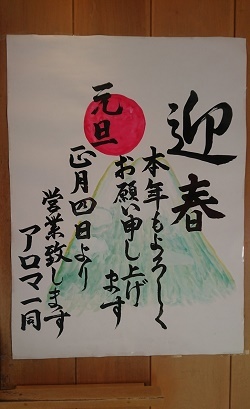 迎春
本年もよろしく
お願い申し上げ
ます
元旦
正月四日より
営業致します
アロマ一同